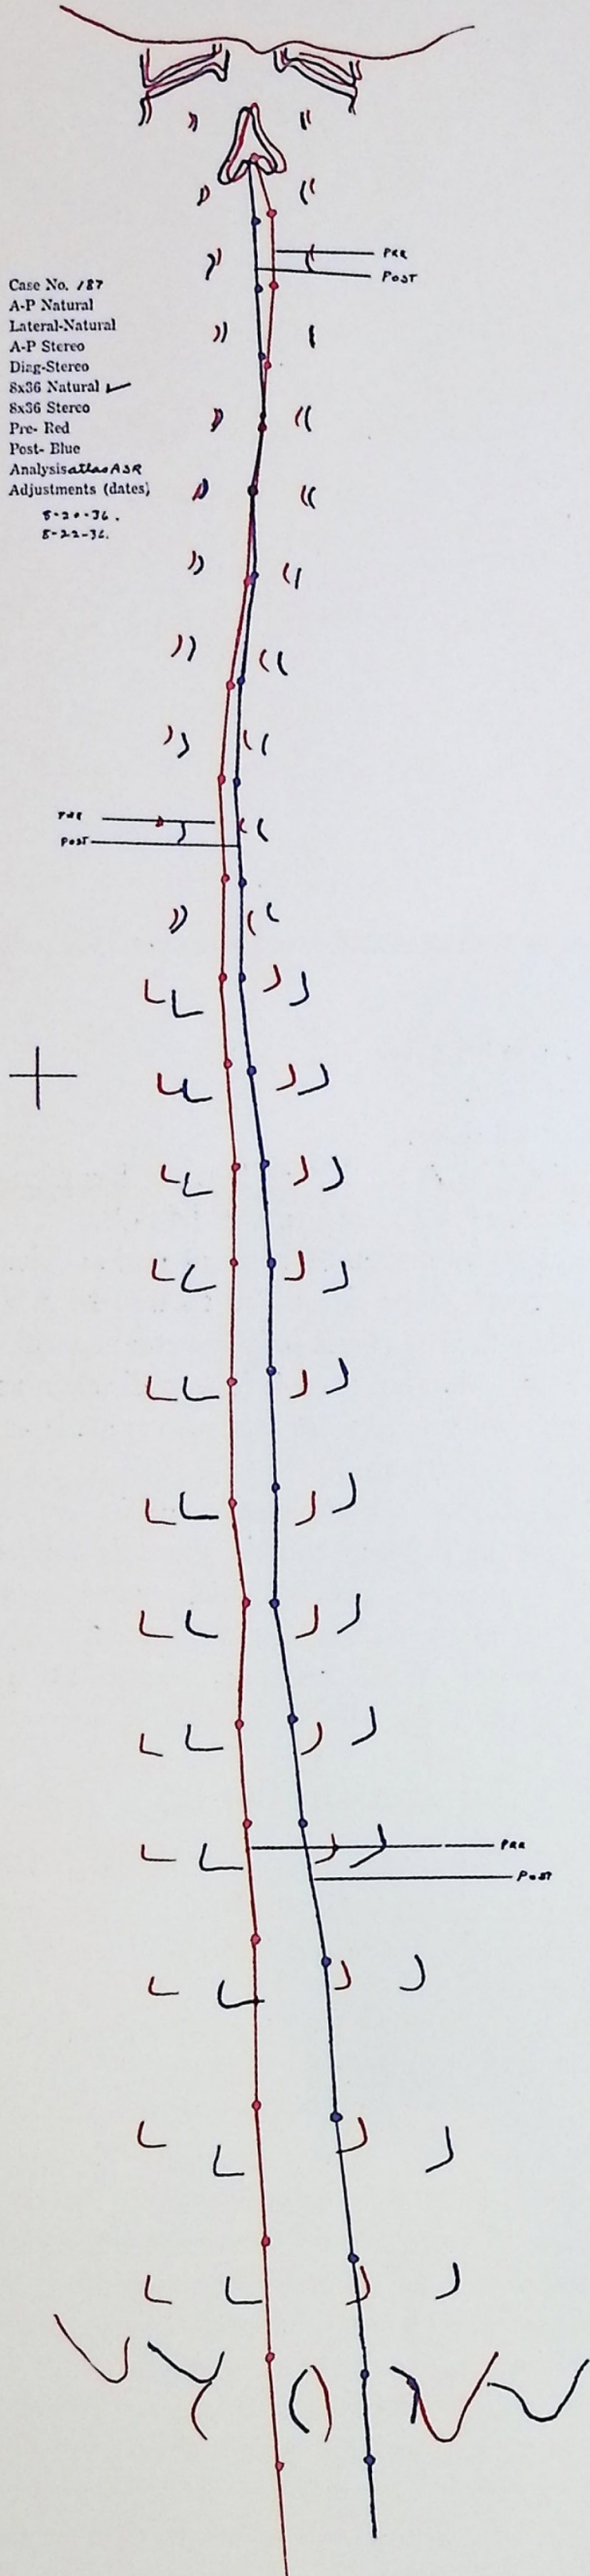 PRE
POST
Case No. 187
A-P Natural
Lateral-Natural
A-P Stereo
Diag-Stereo
8x36 Natural ✓
8x36 Stereo
Pre- Red
Post- Blue
Analysis atlas ASR
Adjustments (dates)
8-20-36.
8-22-36.
PRE
POST
PRE
POST